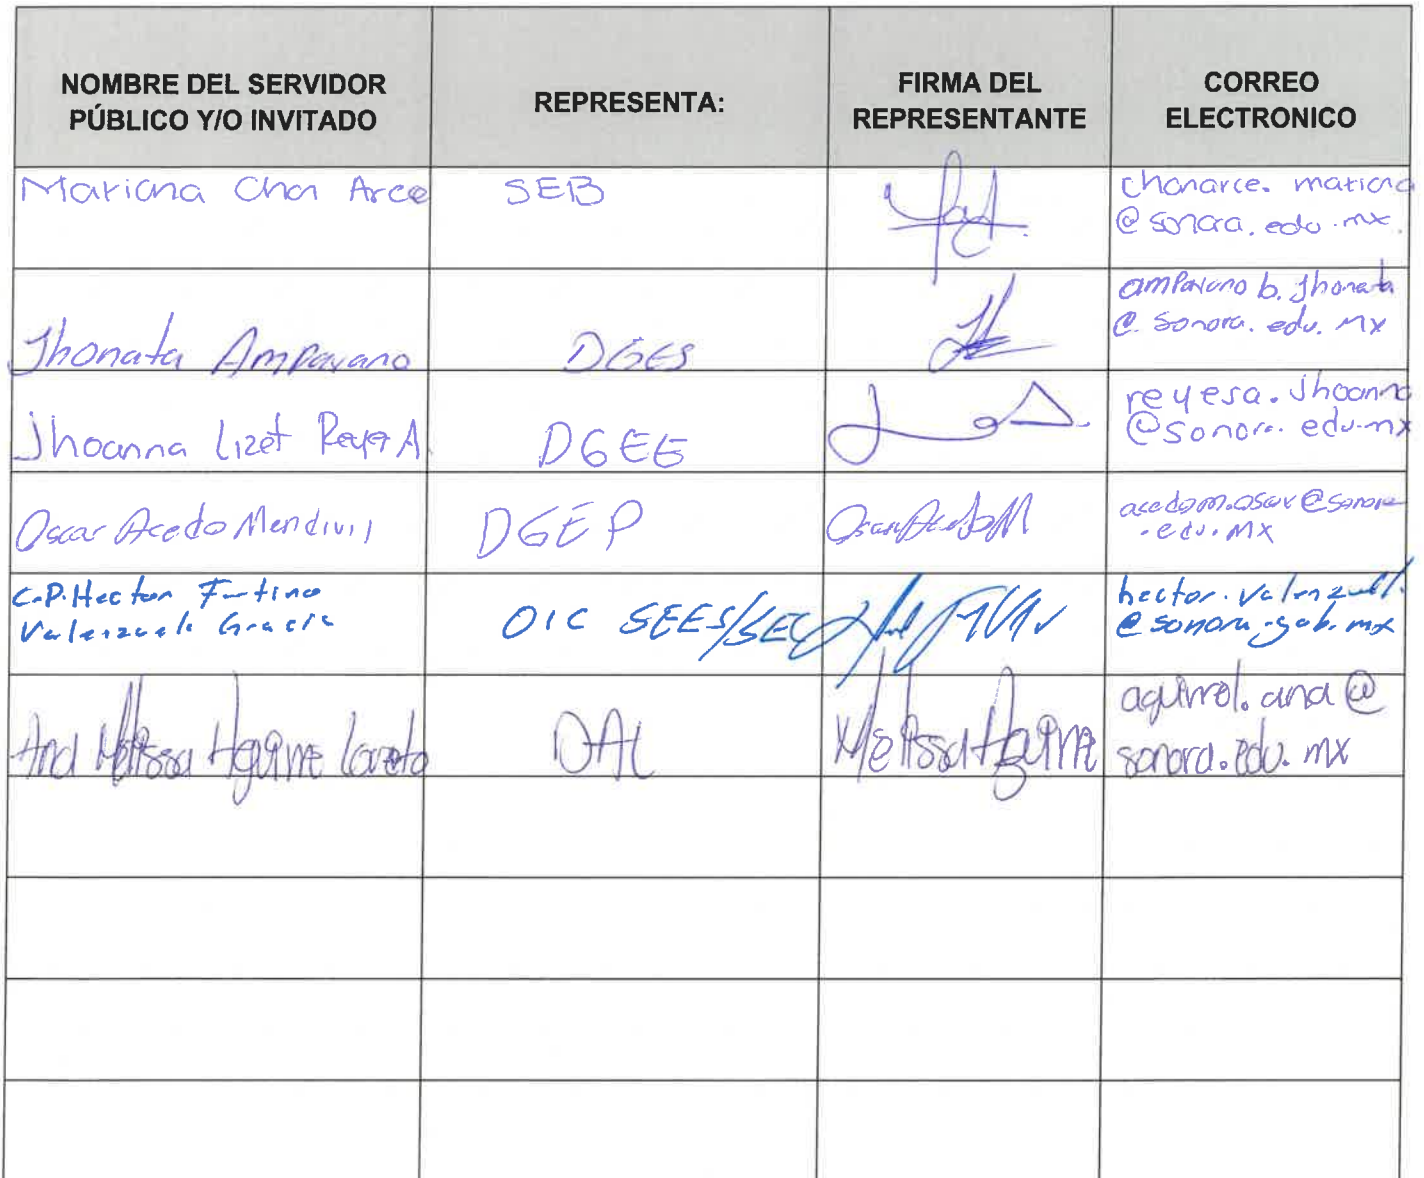 NOMBRE DEL SERVIDOR
PÚBLICO Y/O INVITADO
REPRESENTA:
FIRMA DEL
REPRESENTANTE
CORREO
ELECTRONICO
Mariana Chan Arce
SEB
chanarce.mariana
@sonora.edu.mx.
Jhonata Amparano
DGES
amparano b.Jhonata
@.sonora.edu.mx
Jhoanna Lizet Reyes A.
DGEE
reyesa.Jhoanna
@sonora.edu.mx
Oscar Acedo Mendivil
DGEP
Oscar Acedo M
acedom.oscar@sonora
.edu.mx
C.P. Hector
Valenzuela Gracia
OIC SEES/SEC
hector.valenzuela.
@sonora.gob.mx
Ana Melissa Aguirre Loreto
DAL
Melissa Aguirre
aguirrel.ana@
sonora.edu.mx